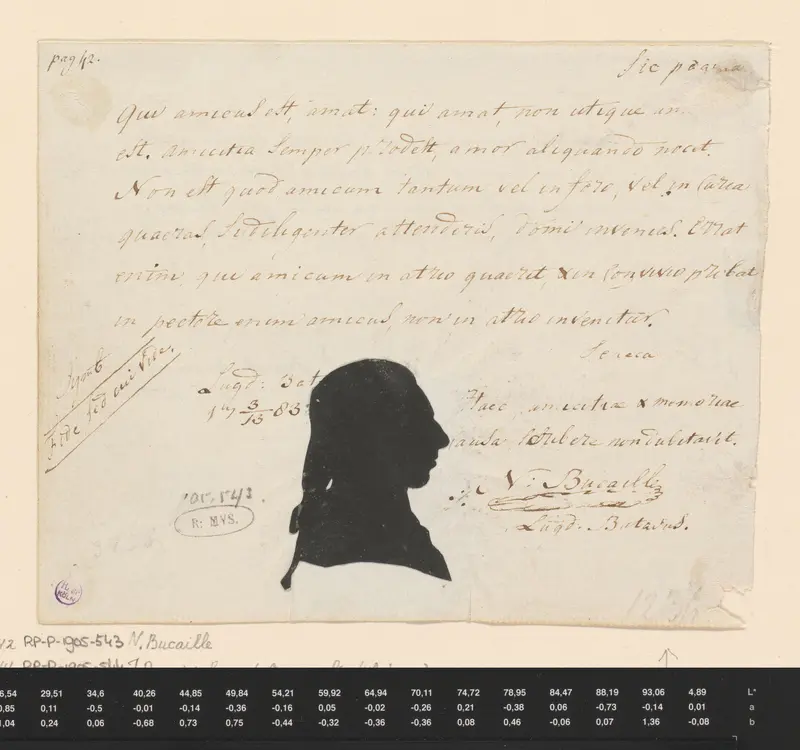 pag 42.
Sic pagina
Qui amicus est, amat: qui amat, non utique am
est. amicitia Semper prodest, amor aliquando nocet.
Non est quod amicum tantum vel in foro, vel in Curia
quaeras, Si diligenter attenderis, domi invenies. Errat
enim, qui amicum in atrio quaerit, & in Convivio probat
in pectore enim amicus, non in atrio invenitur.
Seneca
Symb
Fide sed cui vide.
Lugd: Bat
17 3/13 83
Haec, amicitiae & memoriae
causa, Scribere non dubitavit.
N: Bucaille
Lugd. Batavus.
1905.543.
R: MVS.
42 RP-P-1905-543 N. Bucaille
RP-P-1905-544
6,54 29,51 34,6 40,26 44,85 49,84 54,21 59,92 64,94 70,11 74,72 78,95 84,47 88,19 93,06 4,89 L*
0,85 0,11 -0,5 -0,01 -0,14 -0,36 -0,16 0,05 -0,02 -0,26 0,21 -0,38 0,06 -0,73 -0,14 0,01 a
1,04 0,24 0,06 -0,68 0,73 0,75 -0,44 -0,32 -0,36 -0,36 0,08 0,46 -0,06 0,07 1,36 -0,08 b